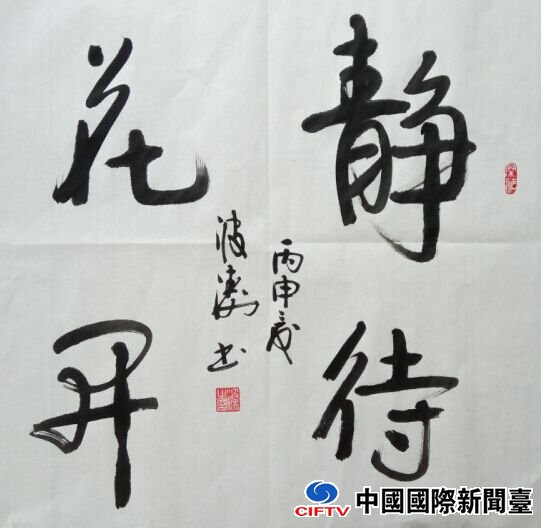 静待
花開
丙申夏
波涛书
CIFTV 中國國際新聞臺